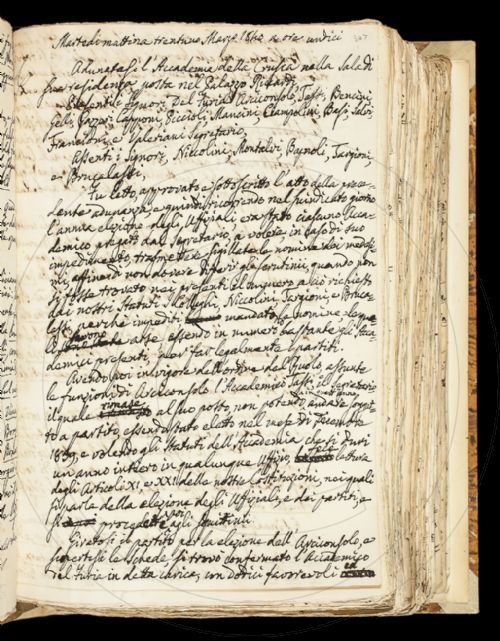 Martedì mattina trentuno Marzo 1840 a ore undici
Adunatasi l'Accademia della Crusca nella Sala di
sua residenza posta nel Palazzo Riccardi
Presenti i Signori Del Furia Arciconsolo, Tassi, Bencini,
Gelli, Gazzeri Capponi, Becchi, Mancini Ciampolini, Basi, Salvi,
Francioni, e Valeriani Segretario,
Assenti i Signori, Niccolini, Montalvi, Bagnoli, Targioni,
e Brucalassi,
Fu letto, approvato e sottoscritto l'atto della prece-
dente adunanza, e quindi ricorrendo nel sunnicato giorno
l'annua elezione degli Uffiziali era stato ciascuno Acca-
demico pregato dal Segretario, a volere in caso di suo
impedimento trasmettere sigillate le nomine dei medesi-
mi, affine di non dovere differir gli scrutinii, quando non
si fosse trovato nei presenti il numero a ciò richiesto
dai nostri Statuti. I Colleghi, Niccolini, Targioni, e Bruca-
lassi, perché impediti mandato le nomine
furono arse essendo in numero bastante gli Acca-
demici presenti, per far legalmente i partiti.
Avendo poi in vigore dell'ordine del Ruolo, assunte
le funzioni di Arciconsolo l'Accademico Tassi, il Segretario
il quale rimase al suo posto, non potendo in quest'anno andare sogget-
to a partito, essendo stato eletto nel mese di Dicembre
1839, e volendo gli Statuti dell'Accademia che si duri
un anno intiero in qualunque uffizio, fece lettura
degli Articoli XI e XXI delle nostre Costituzioni, nei quali
si parla della elezione degli Uffiziali, e dei partiti, e
si procedette poi agli scrutinii.
Giratosi il partito per la elezione dell'Arciconsolo, e
apertesi le schede, si trovò confermato l'Accademico
Del Furia in detta carica, con dodici favorevoli